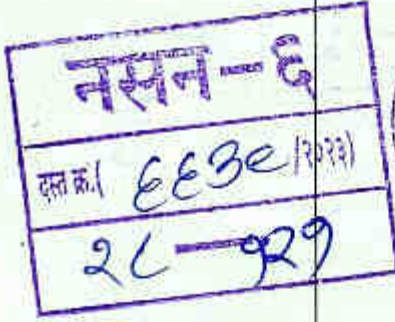 नसन-६
दस्त क्र.( ६६३९/२०२३)
२८-१२१